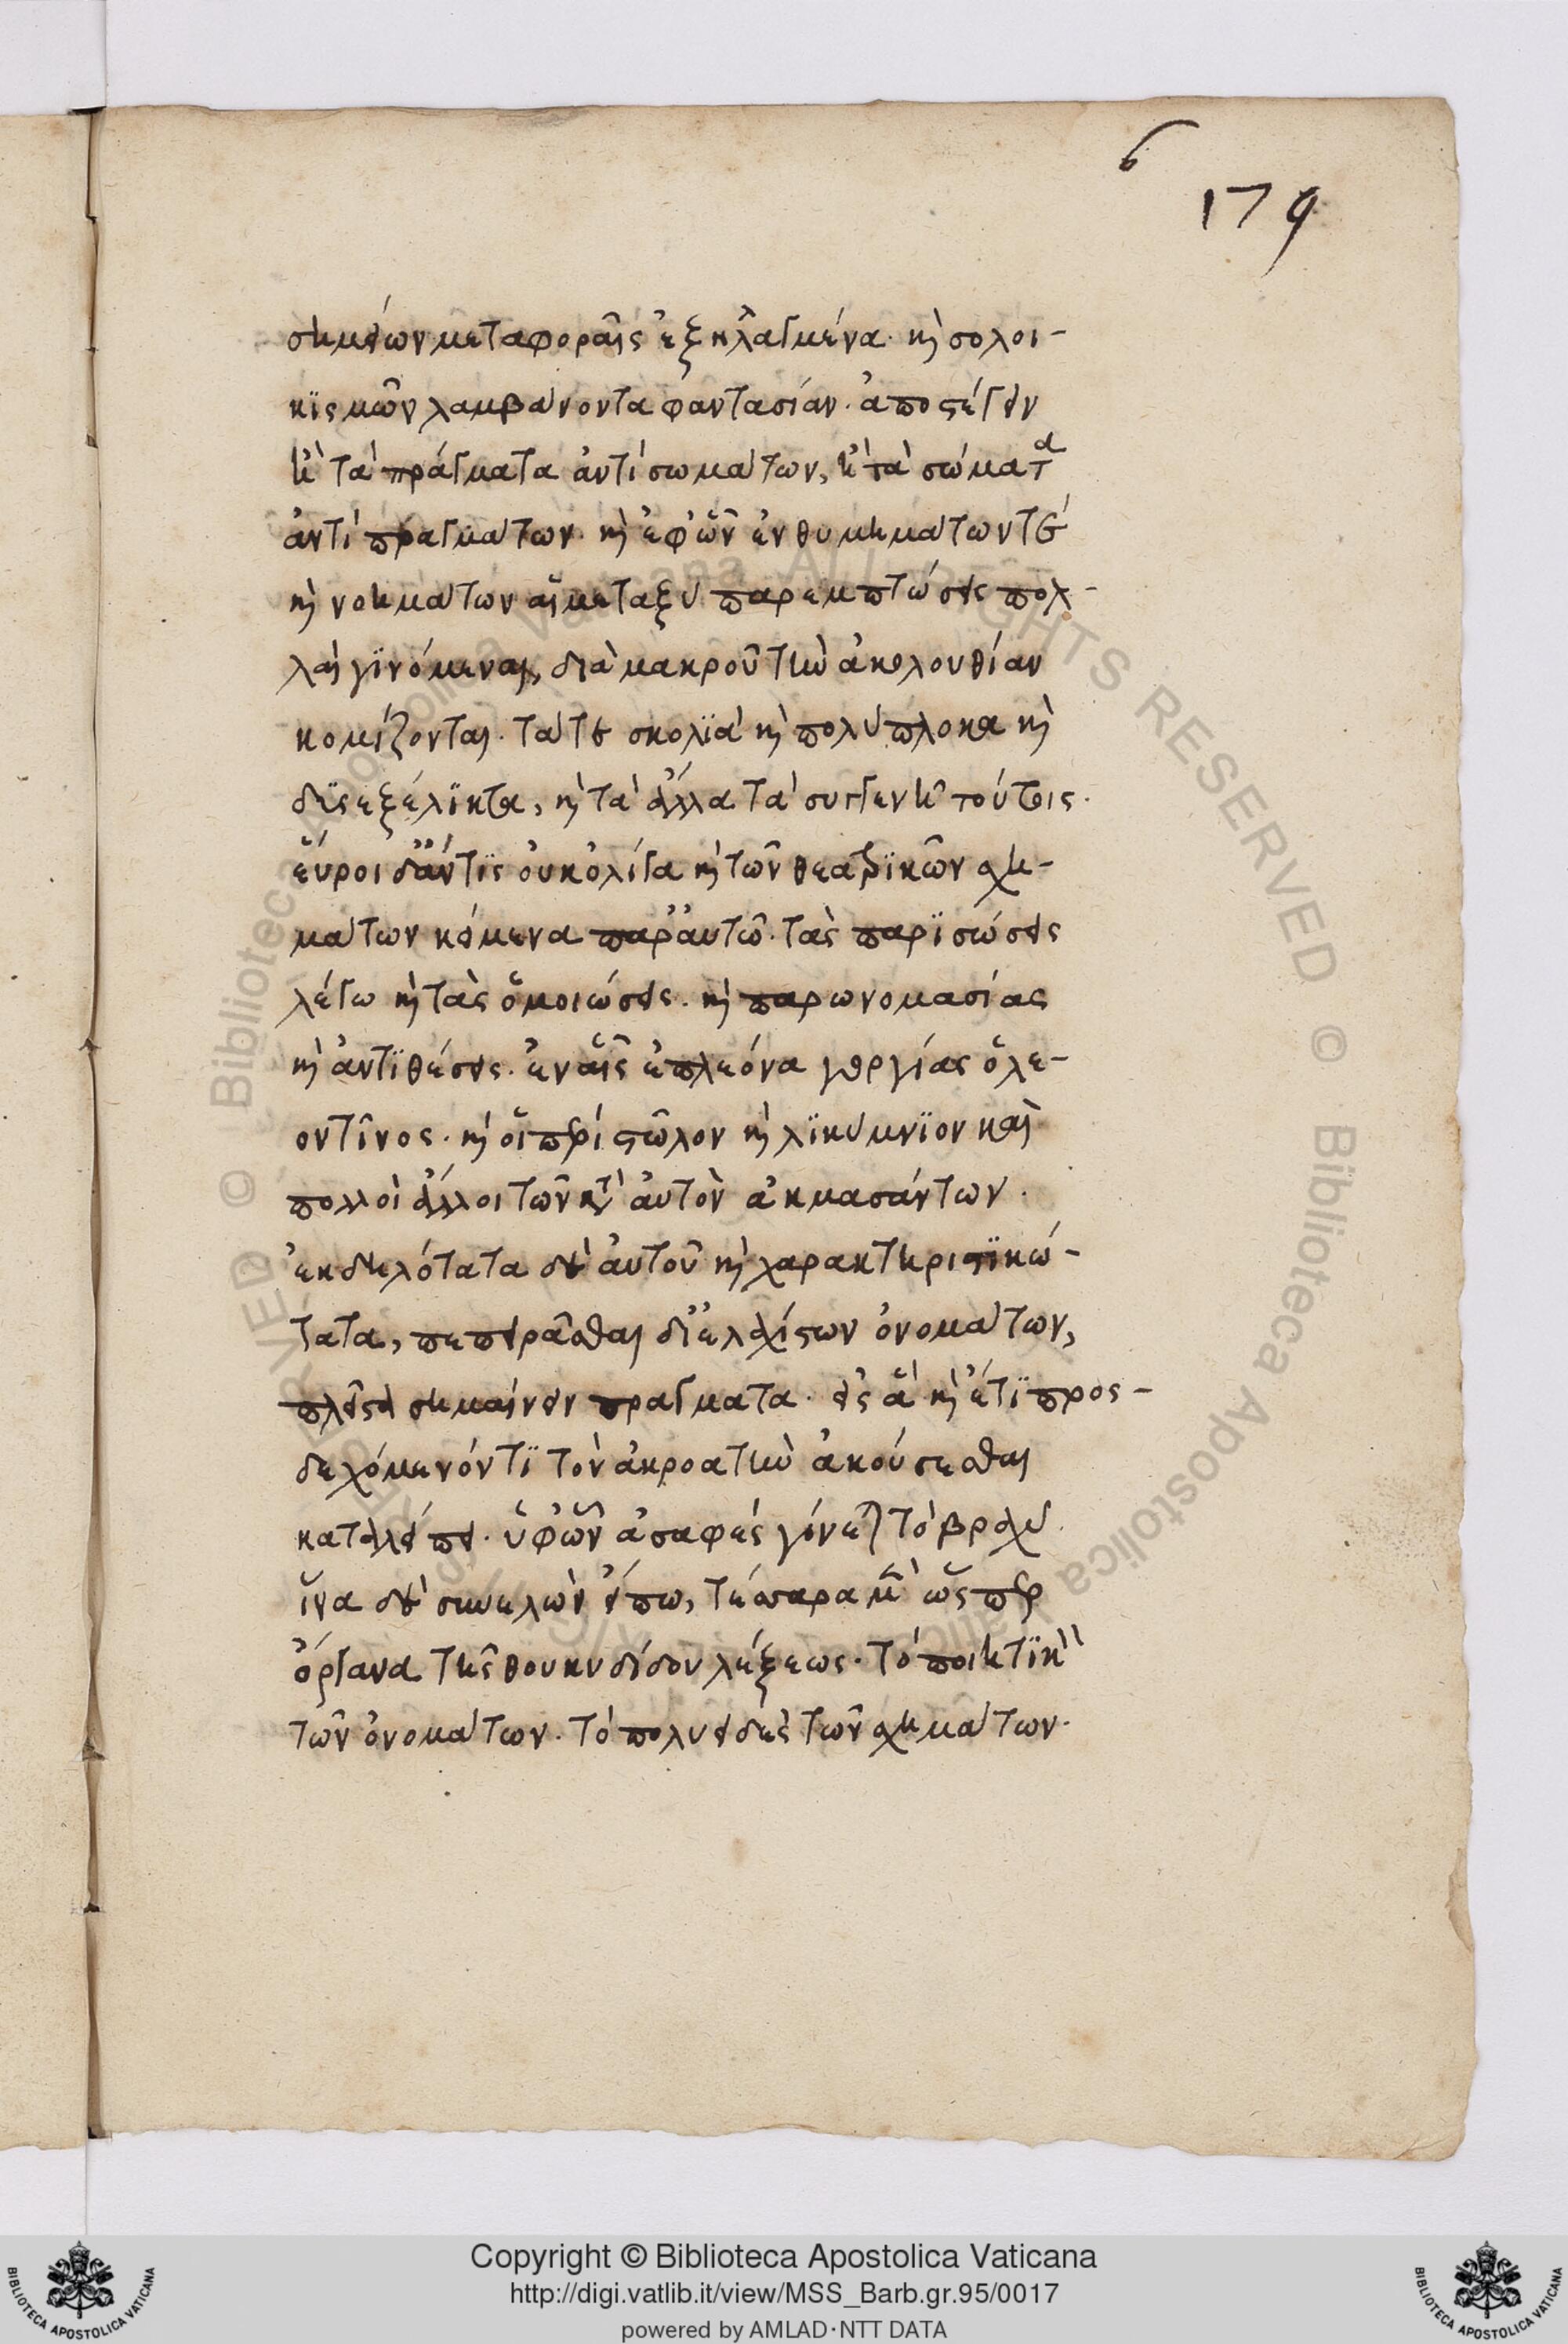 179
σημείων μεταφοραῖς ἐξηλλαγμένα· καὶ σολοι-
κϊσμῶν λαμβάνοντα φαντασίαν· ἀποστέγειν
ἢ τὰ πράγματα ἀντὶ σωμάτων, ἢ τὰ σώματα
ἀντὶ πραγμάτων· καὶ ἐφ' ὧν ἐνθυμημάτων τὲ
καὶ νοημάτων αἱ μεταξὺ παρεμπτώσεις πολ-
λαὶ γϊνόμεναι, διὰ μακροῦ τὴν ἀκολουθίαν
κομίζονται· τά τε σκολϊὰ καὶ πολύπλοκα καὶ
δϋσεξέλϊκτα, καὶ τὰ ἄλλα τὰ συγγενῆ τούτοις·
εὕροι δ' ἄν τϊς οὐκ ὀλίγα καὶ τῶν θεατρϊκῶν σχη-
μάτων κείμενα παρ' αὐτῶ· τὰς παρϊσώσεις
λέγω καὶ τὰς ὁμοιώσεις· καὶ παρωνομασίας
καὶ ἀντϊθέσεις· ἐν αἷς ἐπλεόνα γοργίας ὁ λε-
οντῖνος· καὶ οἱ περὶ στῶλον καὶ λϊκύμνϊον καὶ
πολλοὶ ἄλλοι τῶν κατ' αὐτὸν ἀκμασάντων·
ἐκδηλότατα δὲ αὐτοῦ καὶ χαρακτηριστϊκώ-
τατα, πεπειρᾶσθαι δι' ἐλαχίστων ὀνομάτων,
πλεῖστα σημαίνειν πραγματα· εἰς ἃ καὶ ἔτϊ προς-
δεχόμενόν τϊ τὸν ἀκροατὴν ἀκούσεσθαι
καταλείπει· ὑφ' ὧν ἀσαφὲς γίνεται τὸ βραχύ·
ἵνα δὲ συνελὼν εἴπω, τέσσαρα μὲν ὥσπερ
ὄργανα τῆς θουκυδίδου λέξεως· τὸ ποιητϊκὸν
τῶν ὀνομάτων· τὸ πολυειδὲς τῶν σχημάτων·
Copyright © Biblioteca Apostolica Vaticana
http://digi.vatlib.it/view/MSS_Barb.gr.95/0017
powered by AMLAD·NTT DATA
BIBLIOTECA APOSTOLICA VATICANA
BIBLIOTECA APOSTOLICA VATICANA